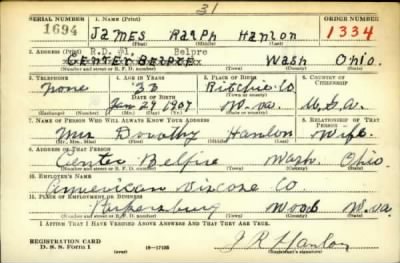 31
SERIAL NUMBER 1. NAME (Print) ORDER NUMBER
1694 JAMES Ralph Hanlon 1334
(First) (Middle) (Last)
2. ADDRESS (Print) R.D. #1, Belpre
CENTER BELPRE Wash Ohio.
(Number and street or R. F. D. number) (Town) (County) (State)
3. TELEPHONE 4. AGE IN YEARS 5. PLACE OF BIRTH 6. COUNTRY OF CITIZENSHIP
none 33 Ritchie Co
DATE OF BIRTH
Jan 29 1907 W. va. U.S.A.
(Mo.) (Day) (Yr.)
7. NAME OF PERSON WHO WILL ALWAYS KNOW YOUR ADDRESS 8. RELATIONSHIP OF THAT PERSON
Mrs Dorothy Hanlon Wife
(Mr., Mrs., Miss) (First) (Middle) (Last)
9. ADDRESS OF THAT PERSON
Center Belpre Wash. Ohio
(Number and street or R. F. D. number) (Town) (County) (State)
10. EMPLOYER'S NAME
American Viscose Co.
11. PLACE OF EMPLOYMENT OR BUSINESS
Parkersburg Wood W. va.
(Number and street or R. F. D. number) (Town) (County) (State)
I AFFIRM THAT I HAVE VERIFIED ABOVE ANSWERS AND THAT THEY ARE TRUE.
REGISTRATION CARD
D. S. S. Form 1 (over) 16—17105 J R Hanlon